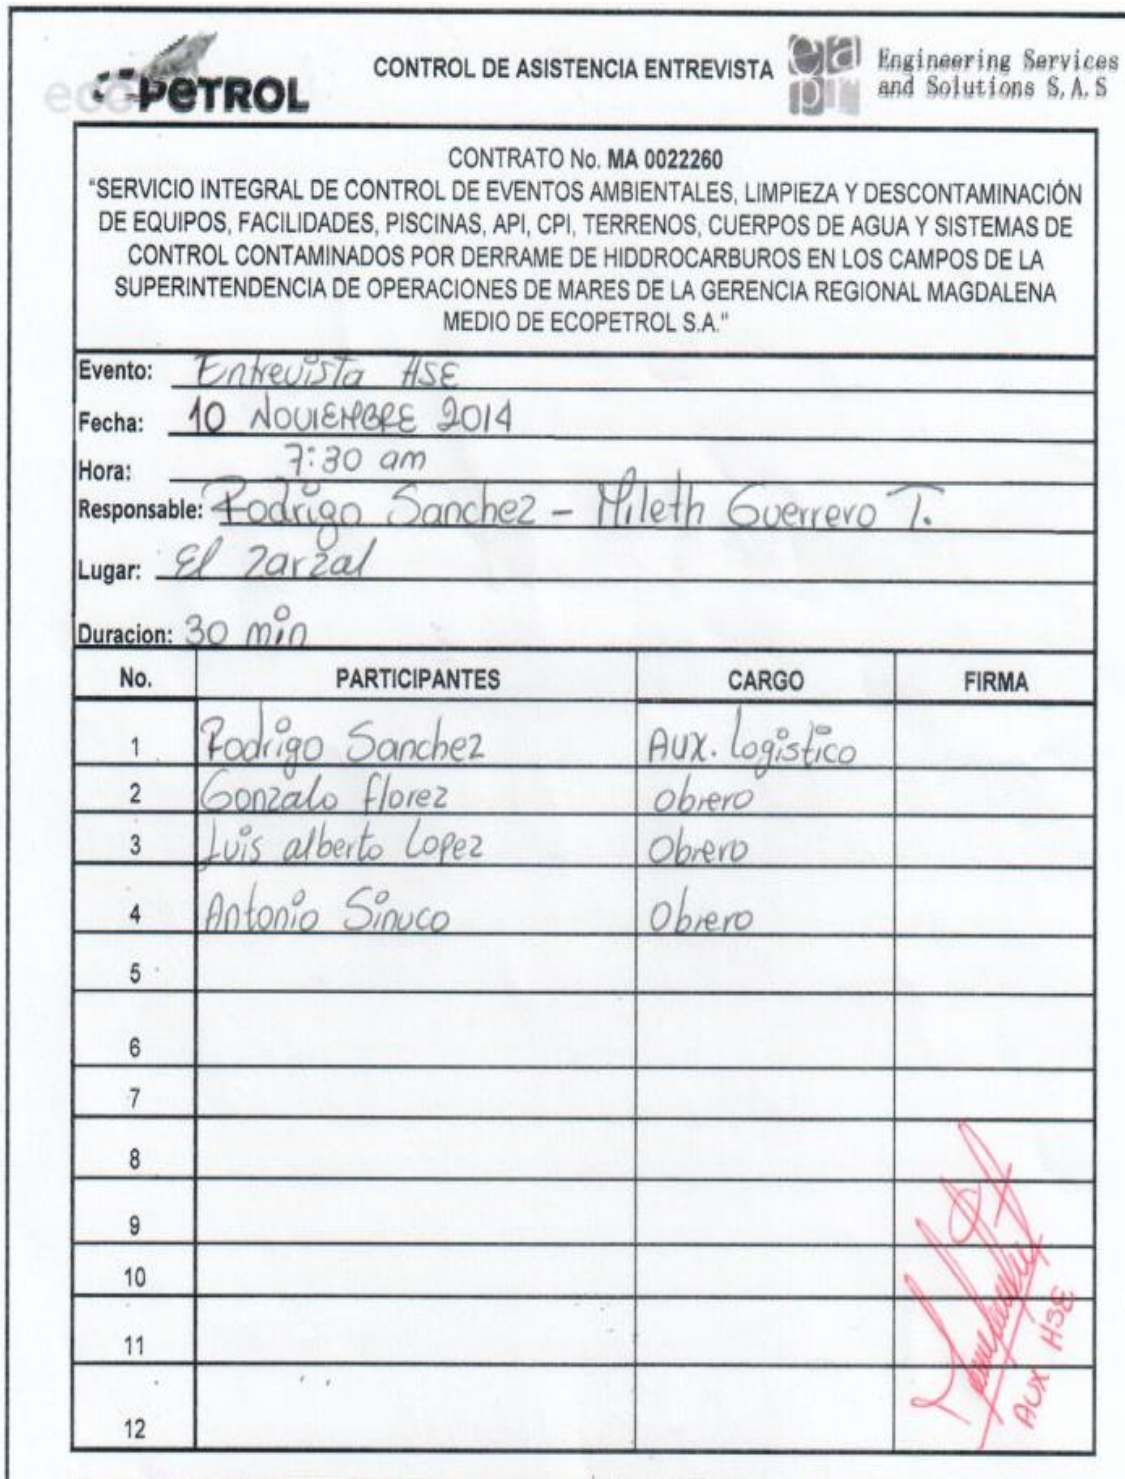 ecoPETROL
CONTROL DE ASISTENCIA ENTREVISTA
Engineering Services
and Solutions S.A.S
CONTRATO No. MA 0022260
"SERVICIO INTEGRAL DE CONTROL DE EVENTOS AMBIENTALES, LIMPIEZA Y DESCONTAMINACIÓN
DE EQUIPOS, FACILIDADES, PISCINAS, API, CPI, TERRENOS, CUERPOS DE AGUA Y SISTEMAS DE
CONTROL CONTAMINADOS POR DERRAME DE HIDDROCARBUROS EN LOS CAMPOS DE LA
SUPERINTENDENCIA DE OPERACIONES DE MARES DE LA GERENCIA REGIONAL MAGDALENA
MEDIO DE ECOPETROL S.A."
Evento: Entrevista HSE
Fecha: 10 NOVIEMBRE 2014
Hora: 7:30 am
Responsable: Rodrigo Sanchez - Mileth Guerrero T.
Lugar: El Zarzal
Duracion: 30 min
No. PARTICIPANTES CARGO FIRMA
1 Rodrigo Sanchez Aux. Logistico
2 Gonzalo florez Obrero
3 Luis alberto Lopez Obrero
4 Antonio Sinuco Obrero
5
6
7
8
9
10
11
12
AUX HSE